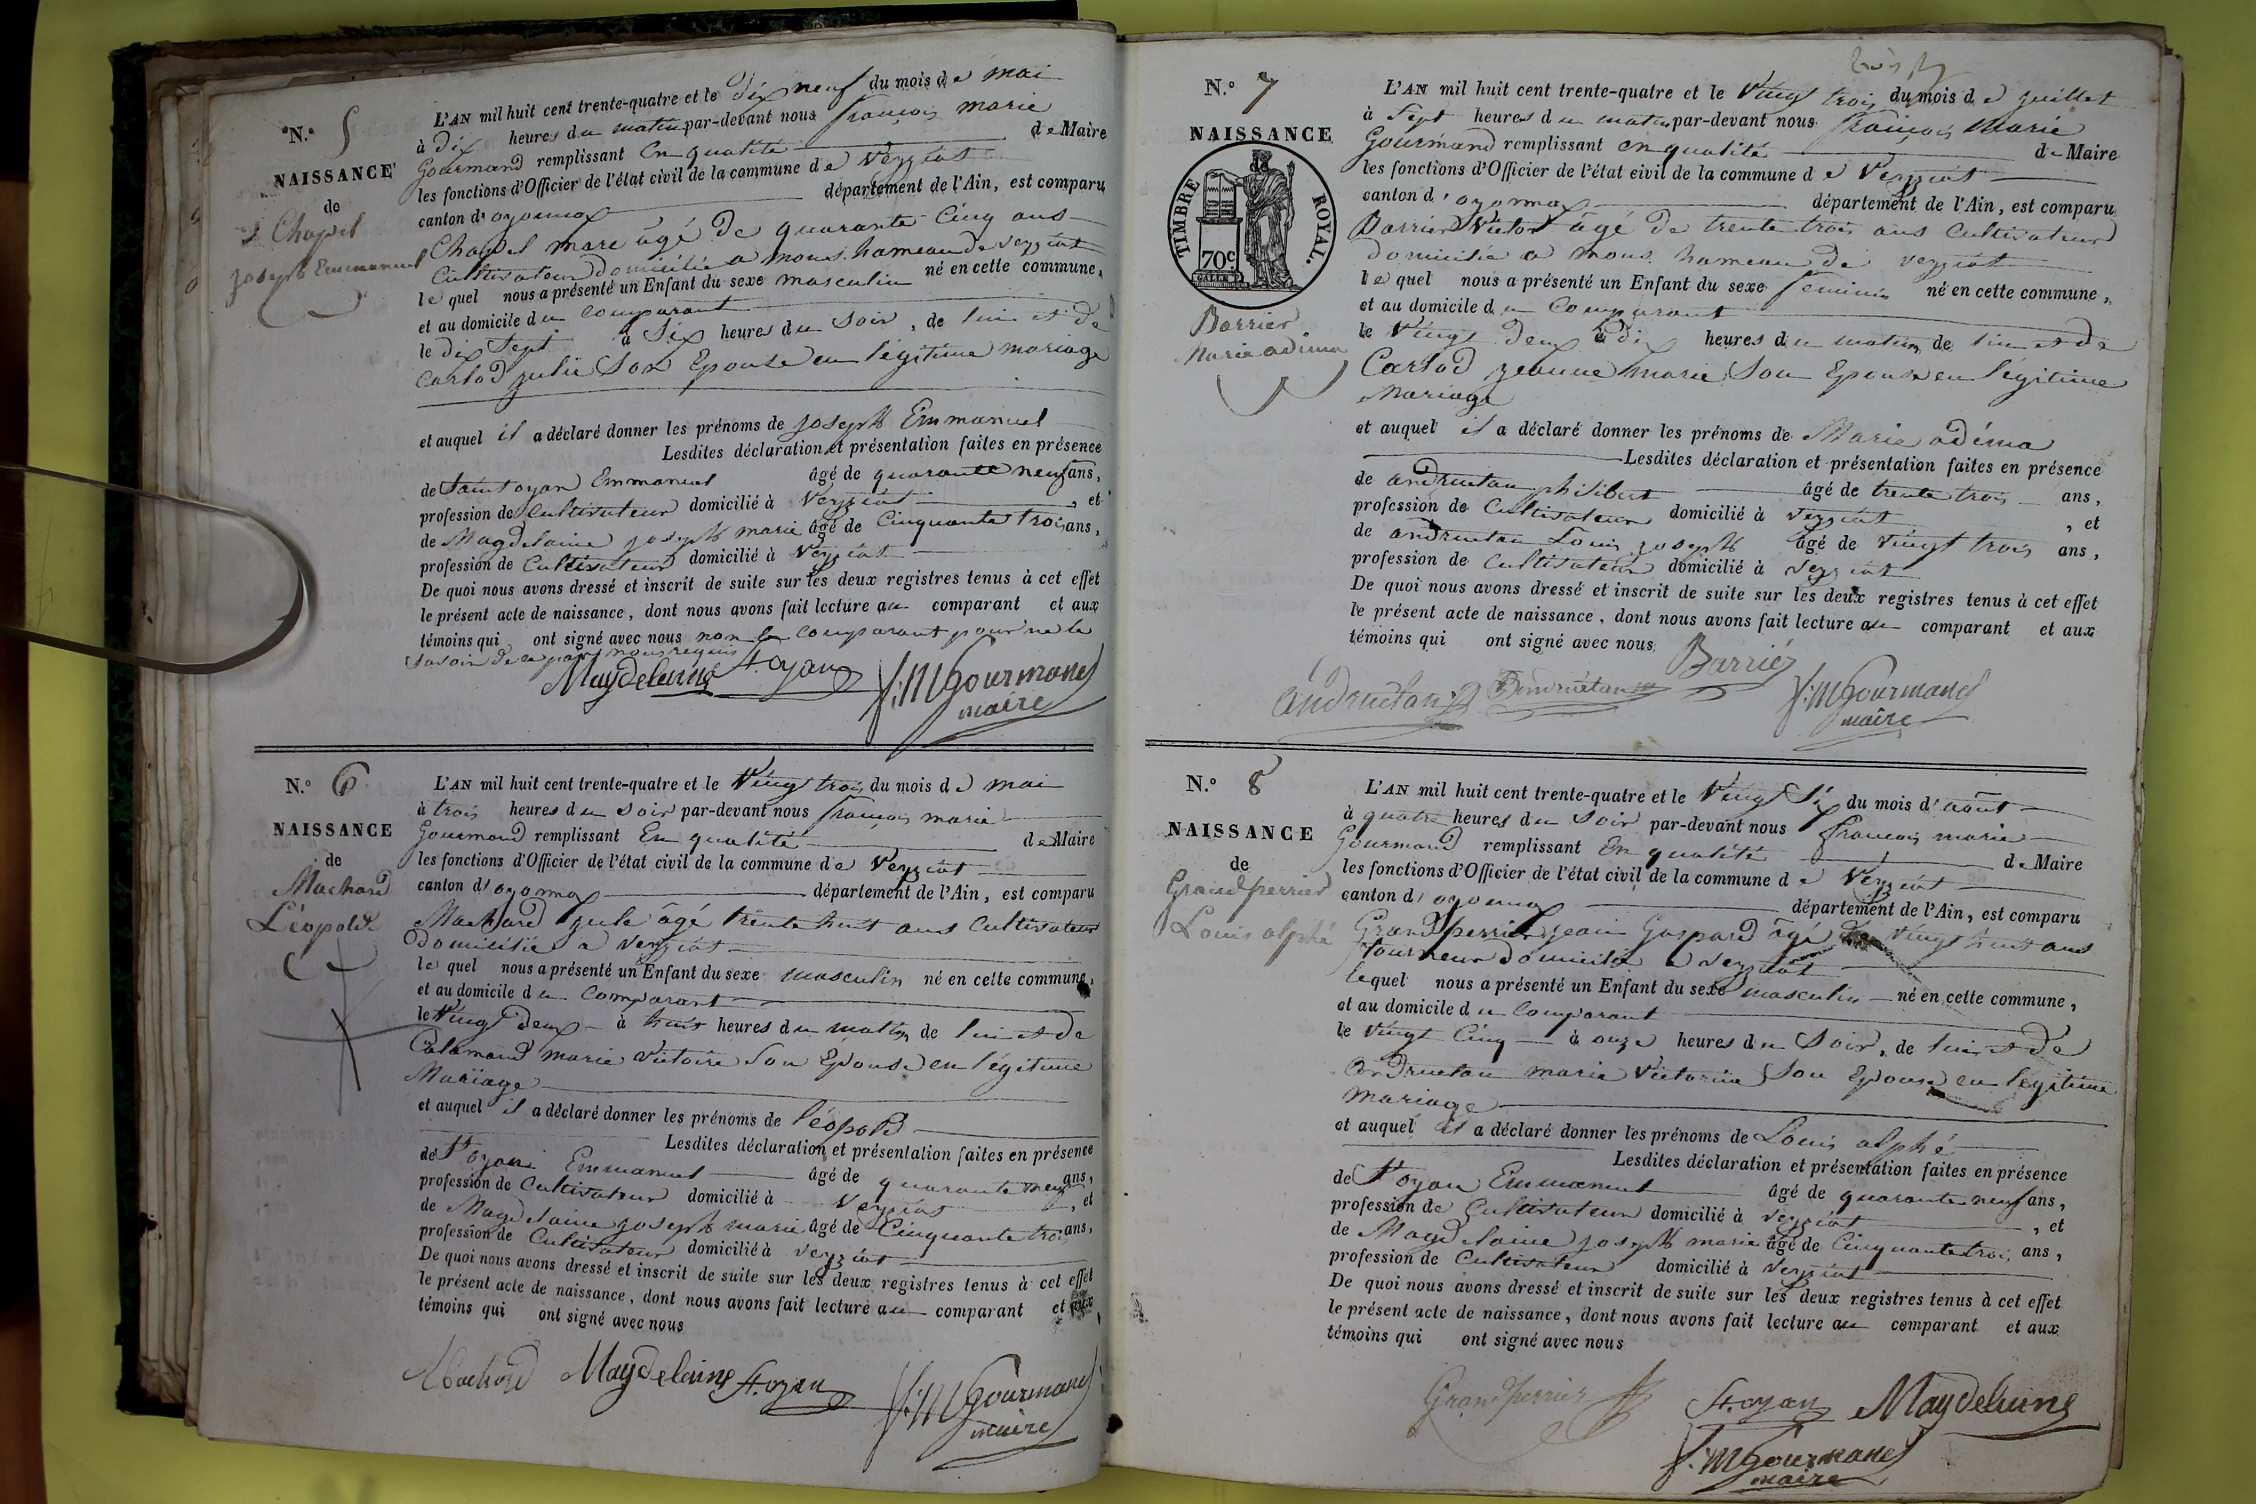 N.° 5
NAISSANCE
de
Chapel
Joseph Emmanuel
L'AN mil huit cent trente-quatre et le dix neuf du mois de mai
à dix heures du matin par-devant nous françois marie
Gourmand remplissant en qualité de Maire
les fonctions d'Officier de l'état civil de la commune de Veyziat
canton d'oyonnax département de l'Ain, est comparu
Chapel marc âgé de quarante Cinq ans
Cultivateur domicilié a mons hameau de veyziat
lequel nous a présenté un Enfant du sexe masculin né en cette commune,
et au domicile du comparant
le dix Sept à Six heures du Soir, de lui et de
Carlod julie Son Epouse en légitime mariage
et auquel il a déclaré donner les prénoms de joseph Emmanuel
Lesdites déclaration et présentation faites en présence
de Saintoyan Emmanuel âgé de quarante neuf ans,
profession de Cultivateur domicilié à Veyziat, et
de Magdelaine joseph marie âgé de Cinquante trois ans,
profession de Cultivateur domicilié à Veyziat
De quoi nous avons dressé et inscrit de suite sur les deux registres tenus à cet effet
le présent acte de naissance, dont nous avons fait lecture au comparant et aux
témoins qui ont signé avec nous non le comparant pour ne le
savoir de ce par nous requis
Magdelaine St. oyan f. M Gourmand
maire
N.° 6
NAISSANCE
de
Machard
Léopold
L'AN mil huit cent trente-quatre et le Vingt trois du mois de mai
à trois heures du soir par-devant nous françois marie
Gourmand remplissant En qualité de Maire
les fonctions d'Officier de l'état civil de la commune de Veyziat
canton d'oyonnax département de l'Ain, est comparu
Machard jule âgé trente huit ans Cultivateur
domicilié a veyziat
lequel nous a présenté un Enfant du sexe masculin né en cette commune,
et au domicile du comparant
le Vingt deux à huit heures du matin de lui et de
Calamand marie victoire Son Epouse en légitime
Mariage
et auquel il a déclaré donner les prénoms de léopold
Lesdites déclaration et présentation faites en présence
de St oyan Emmanuel âgé de quarante neuf ans,
profession de Cultivateur domicilié à Veyziat, et
de Magdelaine joseph marie âgé de Cinquante trois ans,
profession de Cultivateur domicilié à veyziat
De quoi nous avons dressé et inscrit de suite sur les deux registres tenus à cet effet
le présent acte de naissance, dont nous avons fait lecture au comparant et aux
témoins qui ont signé avec nous
Machard Magdelaine St. oyan f. M Gourmand
maire
N.° 7
NAISSANCE
TIMBRE ROYAL.
70c
Barrier
Marie adéma
L'AN mil huit cent trente-quatre et le Vingt trois du mois de juillet
à Sept heures du matin par-devant nous françois Marie
Gourmand remplissant en qualité de Maire
les fonctions d'Officier de l'état civil de la commune de Veyziat
canton d'oyonnax département de l'Ain, est comparu
Barrier Victor âgé de trente trois ans Cultivateur
domicilié a mons hameau de veyziat
lequel nous a présenté un Enfant du sexe feminin né en cette commune,
et au domicile du comparant
le Vingt deux à dix heures du matin de lui et de
Carlod jeanne marie Son Epouse en légitime
Mariage
et auquel il a déclaré donner les prénoms de Marie adéma
Lesdites déclaration et présentation faites en présence
de andruetan philibert âgé de trente trois ans,
profession de Cultivateur domicilié à veyziat, et
de andruetan Louis joseph âgé de vingt trois ans,
profession de Cultivateur domicilié à veyziat
De quoi nous avons dressé et inscrit de suite sur les deux registres tenus à cet effet
le présent acte de naissance, dont nous avons fait lecture au comparant et aux
témoins qui ont signé avec nous
Barrier
andruetan f. M Gourmand
maire
N.° 8
NAISSANCE
de
Grandperrier
Louis alphé
L'AN mil huit cent trente-quatre et le Vingt Six du mois d'août
à quatre heures du Soir par-devant nous françois marie
Gourmand remplissant En qualité de Maire
les fonctions d'Officier de l'état civil de la commune de Veyziat
canton d'oyonnax département de l'Ain, est comparu
Grandperrier jean Gaspard âgé de vingt huit ans
tourneur domicilié a veyziat
lequel nous a présenté un Enfant du sexe masculin né en cette commune,
et au domicile du comparant
le vingt Cinq à onze heures du Soir, de lui et de
andruetan marie Victorine Son Epouse en légitime
mariage
et auquel il a déclaré donner les prénoms de Louis alphé
Lesdites déclaration et présentation faites en présence
de St oyan Emmanuel âgé de quarante neuf ans,
profession de Cultivateur domicilié à veyziat, et
de Magdelaine joseph marie âgé de Cinquante trois ans,
profession de Cultivateur domicilié à Veyziat
De quoi nous avons dressé et inscrit de suite sur les deux registres tenus à cet effet
le présent acte de naissance, dont nous avons fait lecture au comparant et aux
témoins qui ont signé avec nous
Grandperrier St. oyan Magdelaine
f. M Gourmand
maire